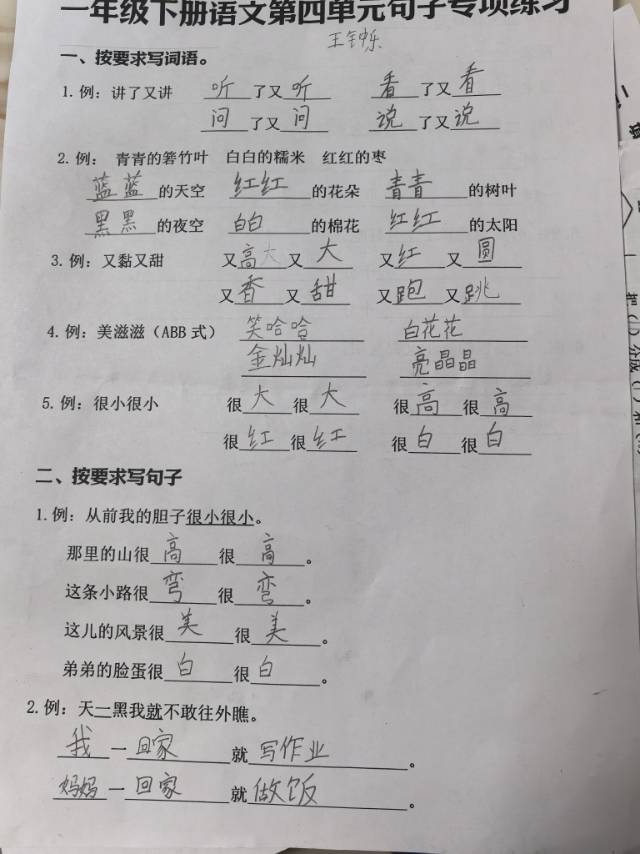 一年级下册语文第四单元句子专项练习
一、按要求写词语。
1. 例：讲了又讲 听了又听 看了又看
问了又问 说了又说
2. 例： 青青的箬竹叶 白白的糯米 红红的枣
蓝蓝的天空 红红的花朵 青青的树叶
黑黑的夜空 白白的棉花 红红的太阳
3. 例：又黏又甜 又高大又大 又红又圆
又香又甜 又跑又跳
4. 例：美滋滋（ABB 式） 笑哈哈 白花花
金灿灿 亮晶晶
5. 例：很小很小 很大很大 很高很高
很红很红 很白很白
二、按要求写句子
1. 例：从前我的胆子很小很小。
那里的山很高很高。
这条小路很弯很弯。
这儿的风景很美很美。
弟弟的脸蛋很白很白。
2. 例：天一黑我就不敢往外瞧。
我一回家就写作业。
妈妈一回家就做饭。